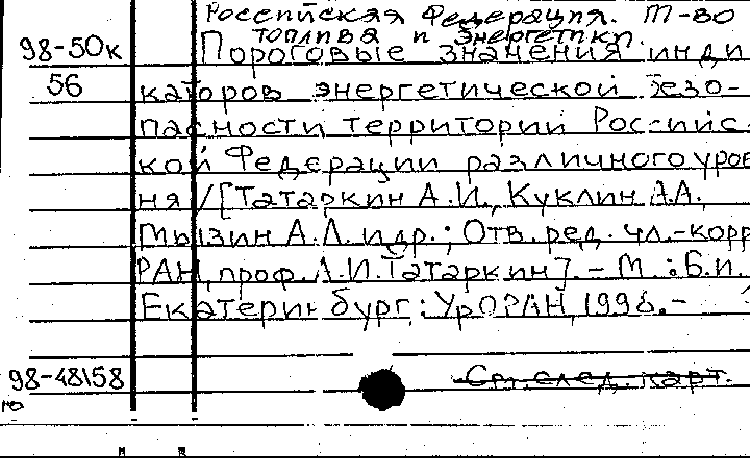 Российская Федерация. М-во
топлива и энергетики.
98-50к Пороговые значения инди
56 каторов энергетической безо-
пасности территорий Российс-
кой Федерации различного уров
ня /[Татаркин А.И., Куклин А.А.,
Мызин А.Л. и др.; Отв. ред. чл.-корр
РАН, проф. А.И. Татаркин]. - М.: Б.и.
Екатеринбург: УрО РАН, 1998. -
98-48158 См. след. карт.